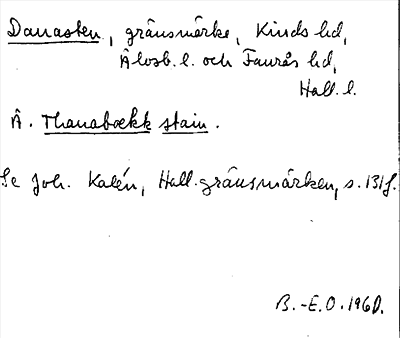 Danasten, gränsmärke, Kinds hd,
Älvsb. l. och Faurås hd,
Hall. l.
Ä. Thanaboekk stain.
Se Joh. Kalén, Hall. gränsmärken, s. 131f.
B.-E.O. 1960.